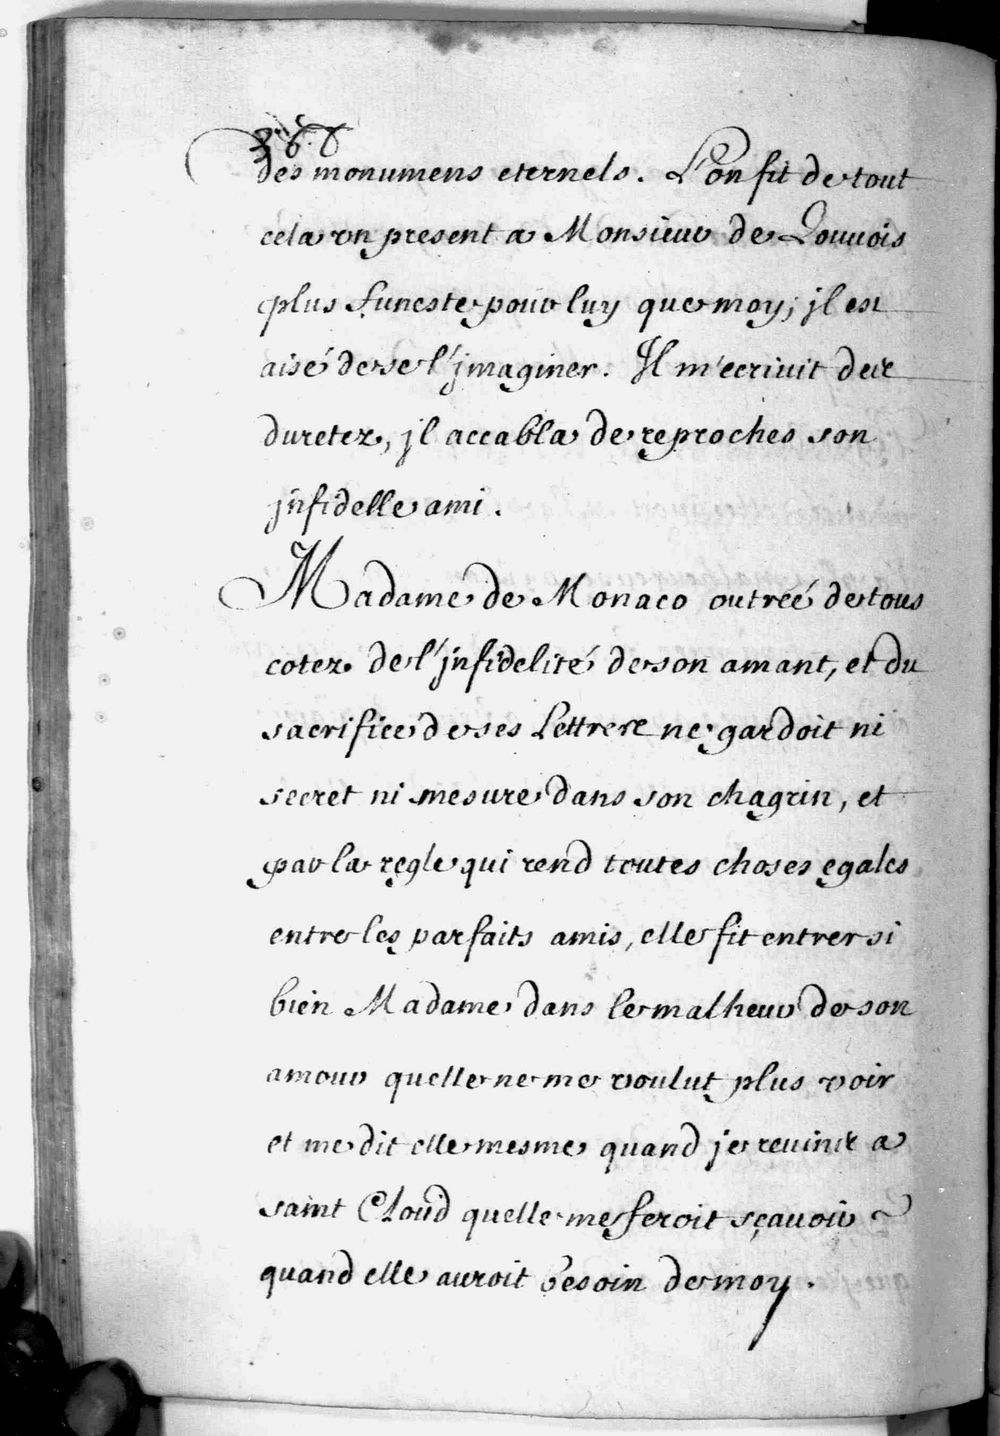 366
des monumens eternels. L'on fit de tout
cela vn present a Monsieur de Louuois
plus funeste pour luy que moy; jl est
aisé de se l'jmaginer. Jl m'ecriuit des
duretez, jl accabla de reproches son
jnfidelle ami.
Madame de Monaco outreé de tous
cotez de l'jnfidelité de son amant, et du
sacrifice de ses Lettres ne gardoit ni
secret ni mesure dans son chagrin, et
par la regle qui rend toutes choses egales
entre les parfaits amis, elle fit entrer si
bien Madame dans le malheur de son
amour quelle ne me voulut plus voir
et me dit elle mesme quand je reuins a
saint Cloud quelle me feroit sçauoir
quand elle auroit besoin de moy.